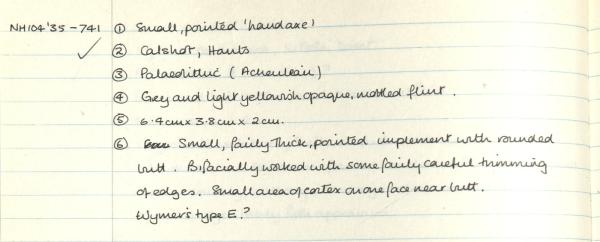 NH104'35-741 ① Small, pointed 'handaxe'
② Calshot, Hants
③ Palaeolithic (Acheulean)
④ Grey and light yellowish opaque, mottled flint.
⑤ 6.4cm x 3.8cm x 2cm.
⑥ Small, fairly thick, pointed implement with rounded
butt. Bifacially worked with some fairly careful trimming
of edges. Small area of cortex on one face near butt.
Wymer's type E.?